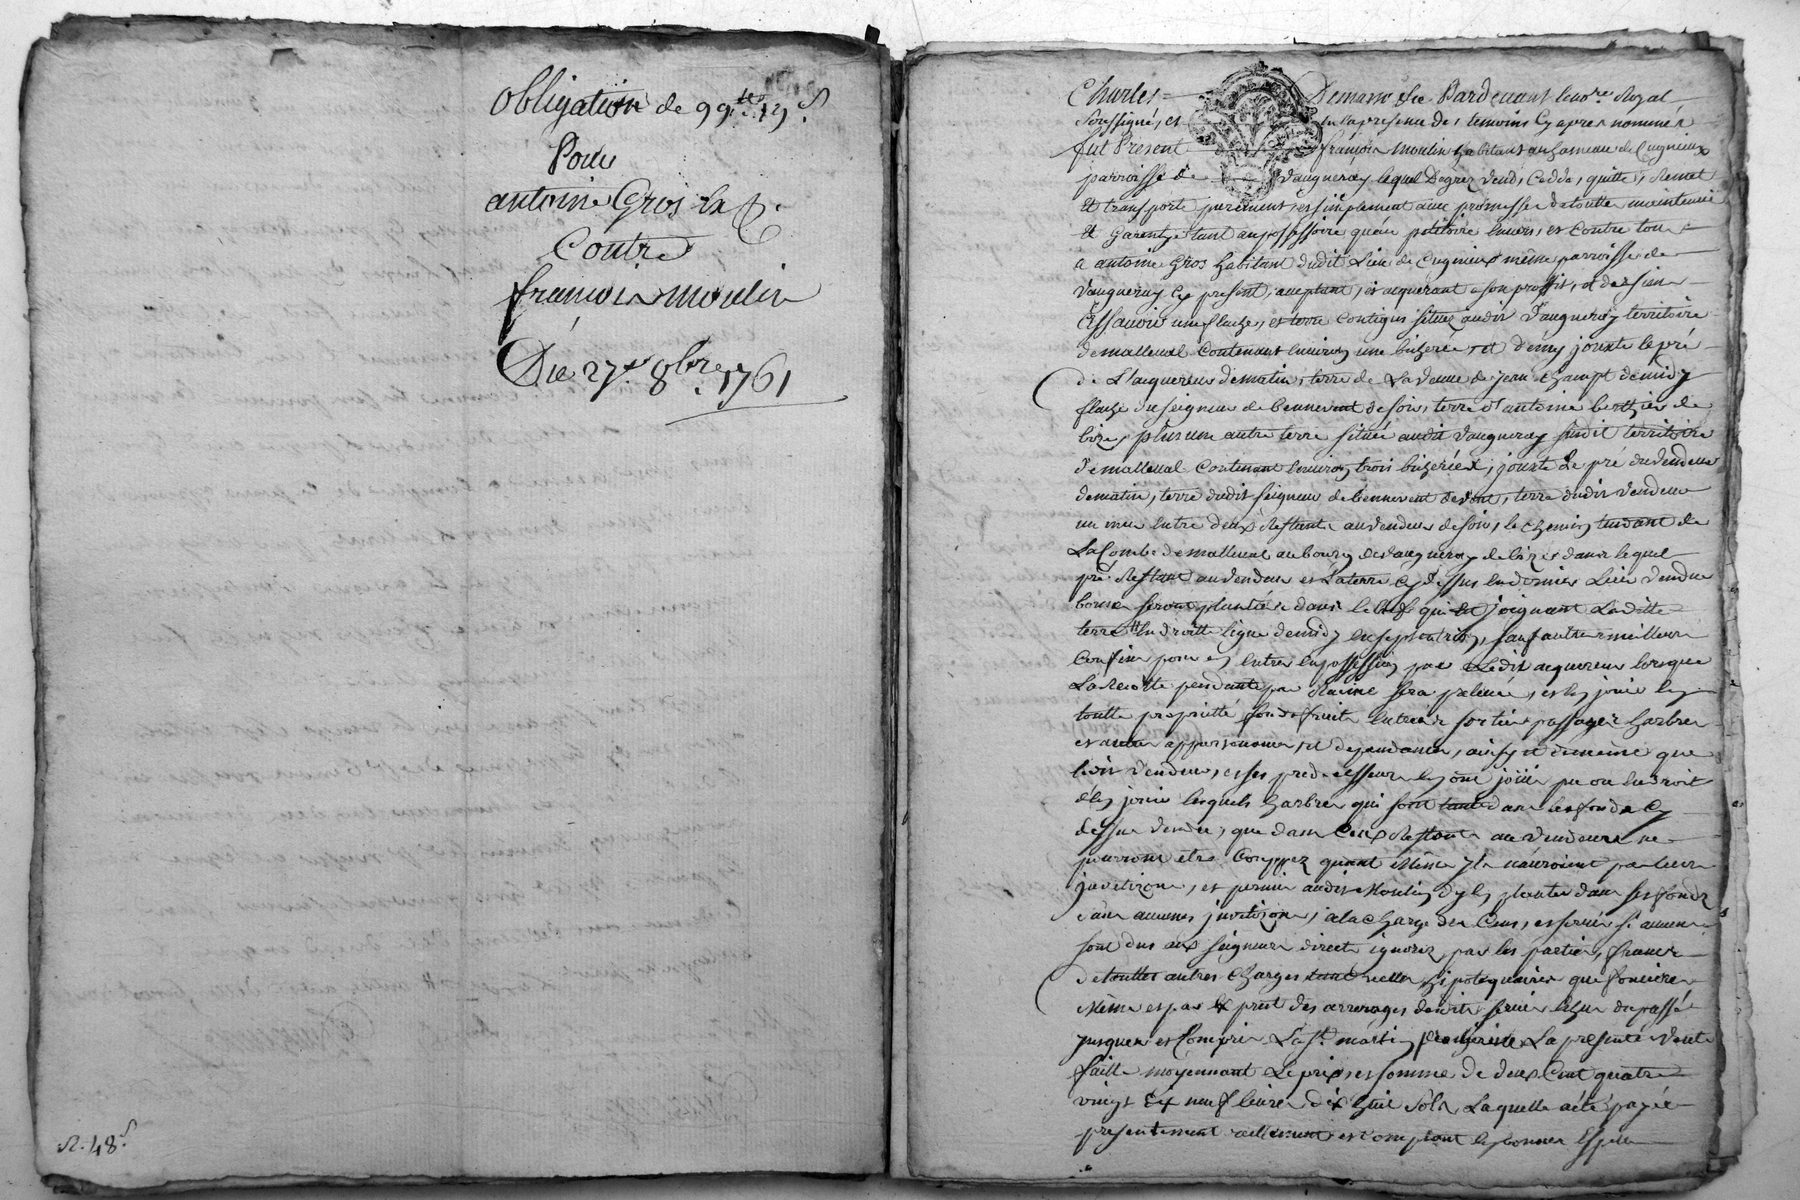 Obligation de 99ᵗᵗ 19 s
Pour
antoine Gros la
Contre
francois moulin
Du 27e 8bre 1761
R. 48 s
Pardevant le nore Royal
Soussigné, et en la presence des temoins Cy apres nommés
fut Present françois moulin habitant au hameau de Cugnieux
parroisse de Vaugneray lequel Degrez vend, Cedde, quitte, Remet
et transporte purement, et simplement avec promesse de toutte maintenüe
et Garentye tant au possessoire qu'au petitoire envers, et contre tous
a antoine Gros habitant dudit Lieu de Cugnieux même parroisse de
Vaugneray Cy present, acceptant, et acquerant a son proffit, et des siens
Assavoir une flache, et terre Contigus situez audit Vaugneray territoire
de malleval Contenant environ une bicherée, et demy jouxte le pré
de L'acquereur de matin, terre de La veuve de jean de midy
flache du seigneur de bennevent de soir, terre d'antoine berthier de
bize, plus une autre terre située audit Vaugneray susdit territoire
de malleval Contenant environ trois bicherées, jouxte Le pré du vendeur
de matin, terre dudit seigneur de bennevent de vent, terre dudit vendeur
un mur entre deux Restante au vendeur de soir, le chemin tendant de
La Combe de malleval au bourg de Vaugneray de bize dans lequel
pré Restant au vendeur et La terre Cy dessus en dernier Lieu vendue
bornes seront plantées dans le qui joignant Laditte
terre en droitte ligne de midy en septentrion, sauf autres meilleurs
Confins pour en entrer en possession par Ledit acquereur lorsque
La Recolte pendante par Racine sera prelevée, et en jouir en
toutte proprietté fonds fruits entrées sorties passages harbres
et autres appartenances, et dependances, ainsy et de même que
ledit vendeur, et ses predecesseurs en ont joüi pu ou eu droit
d'en jouir lesquels harbres qui sont tant dans les fonds Cy
dessus vendus, que dans Ceux Restants au vendeur ne
pourront etre Couppez quant même ils n'auroient pas leurs
invetizons, et permis audit Moulin d'y en planter dans ses fonds
sans aucunes invetizons, a la charge des Cens, et servis si aucuns
sont dus aux seigneurs directs ignorez par les parties, francs
de touttes autres charges tant reelles hipotequaires que foncieres
même et par exprest des arrerages desdits servis echus du passé
jusques et Compris La St martin prochaine La presente vente
faitte moyennant Le prix, et somme de deux Cent quatre
vingt dix neuf livres dix huit sols, Laquelle a été payée
presentement reellement et comptant en bonnes Especes